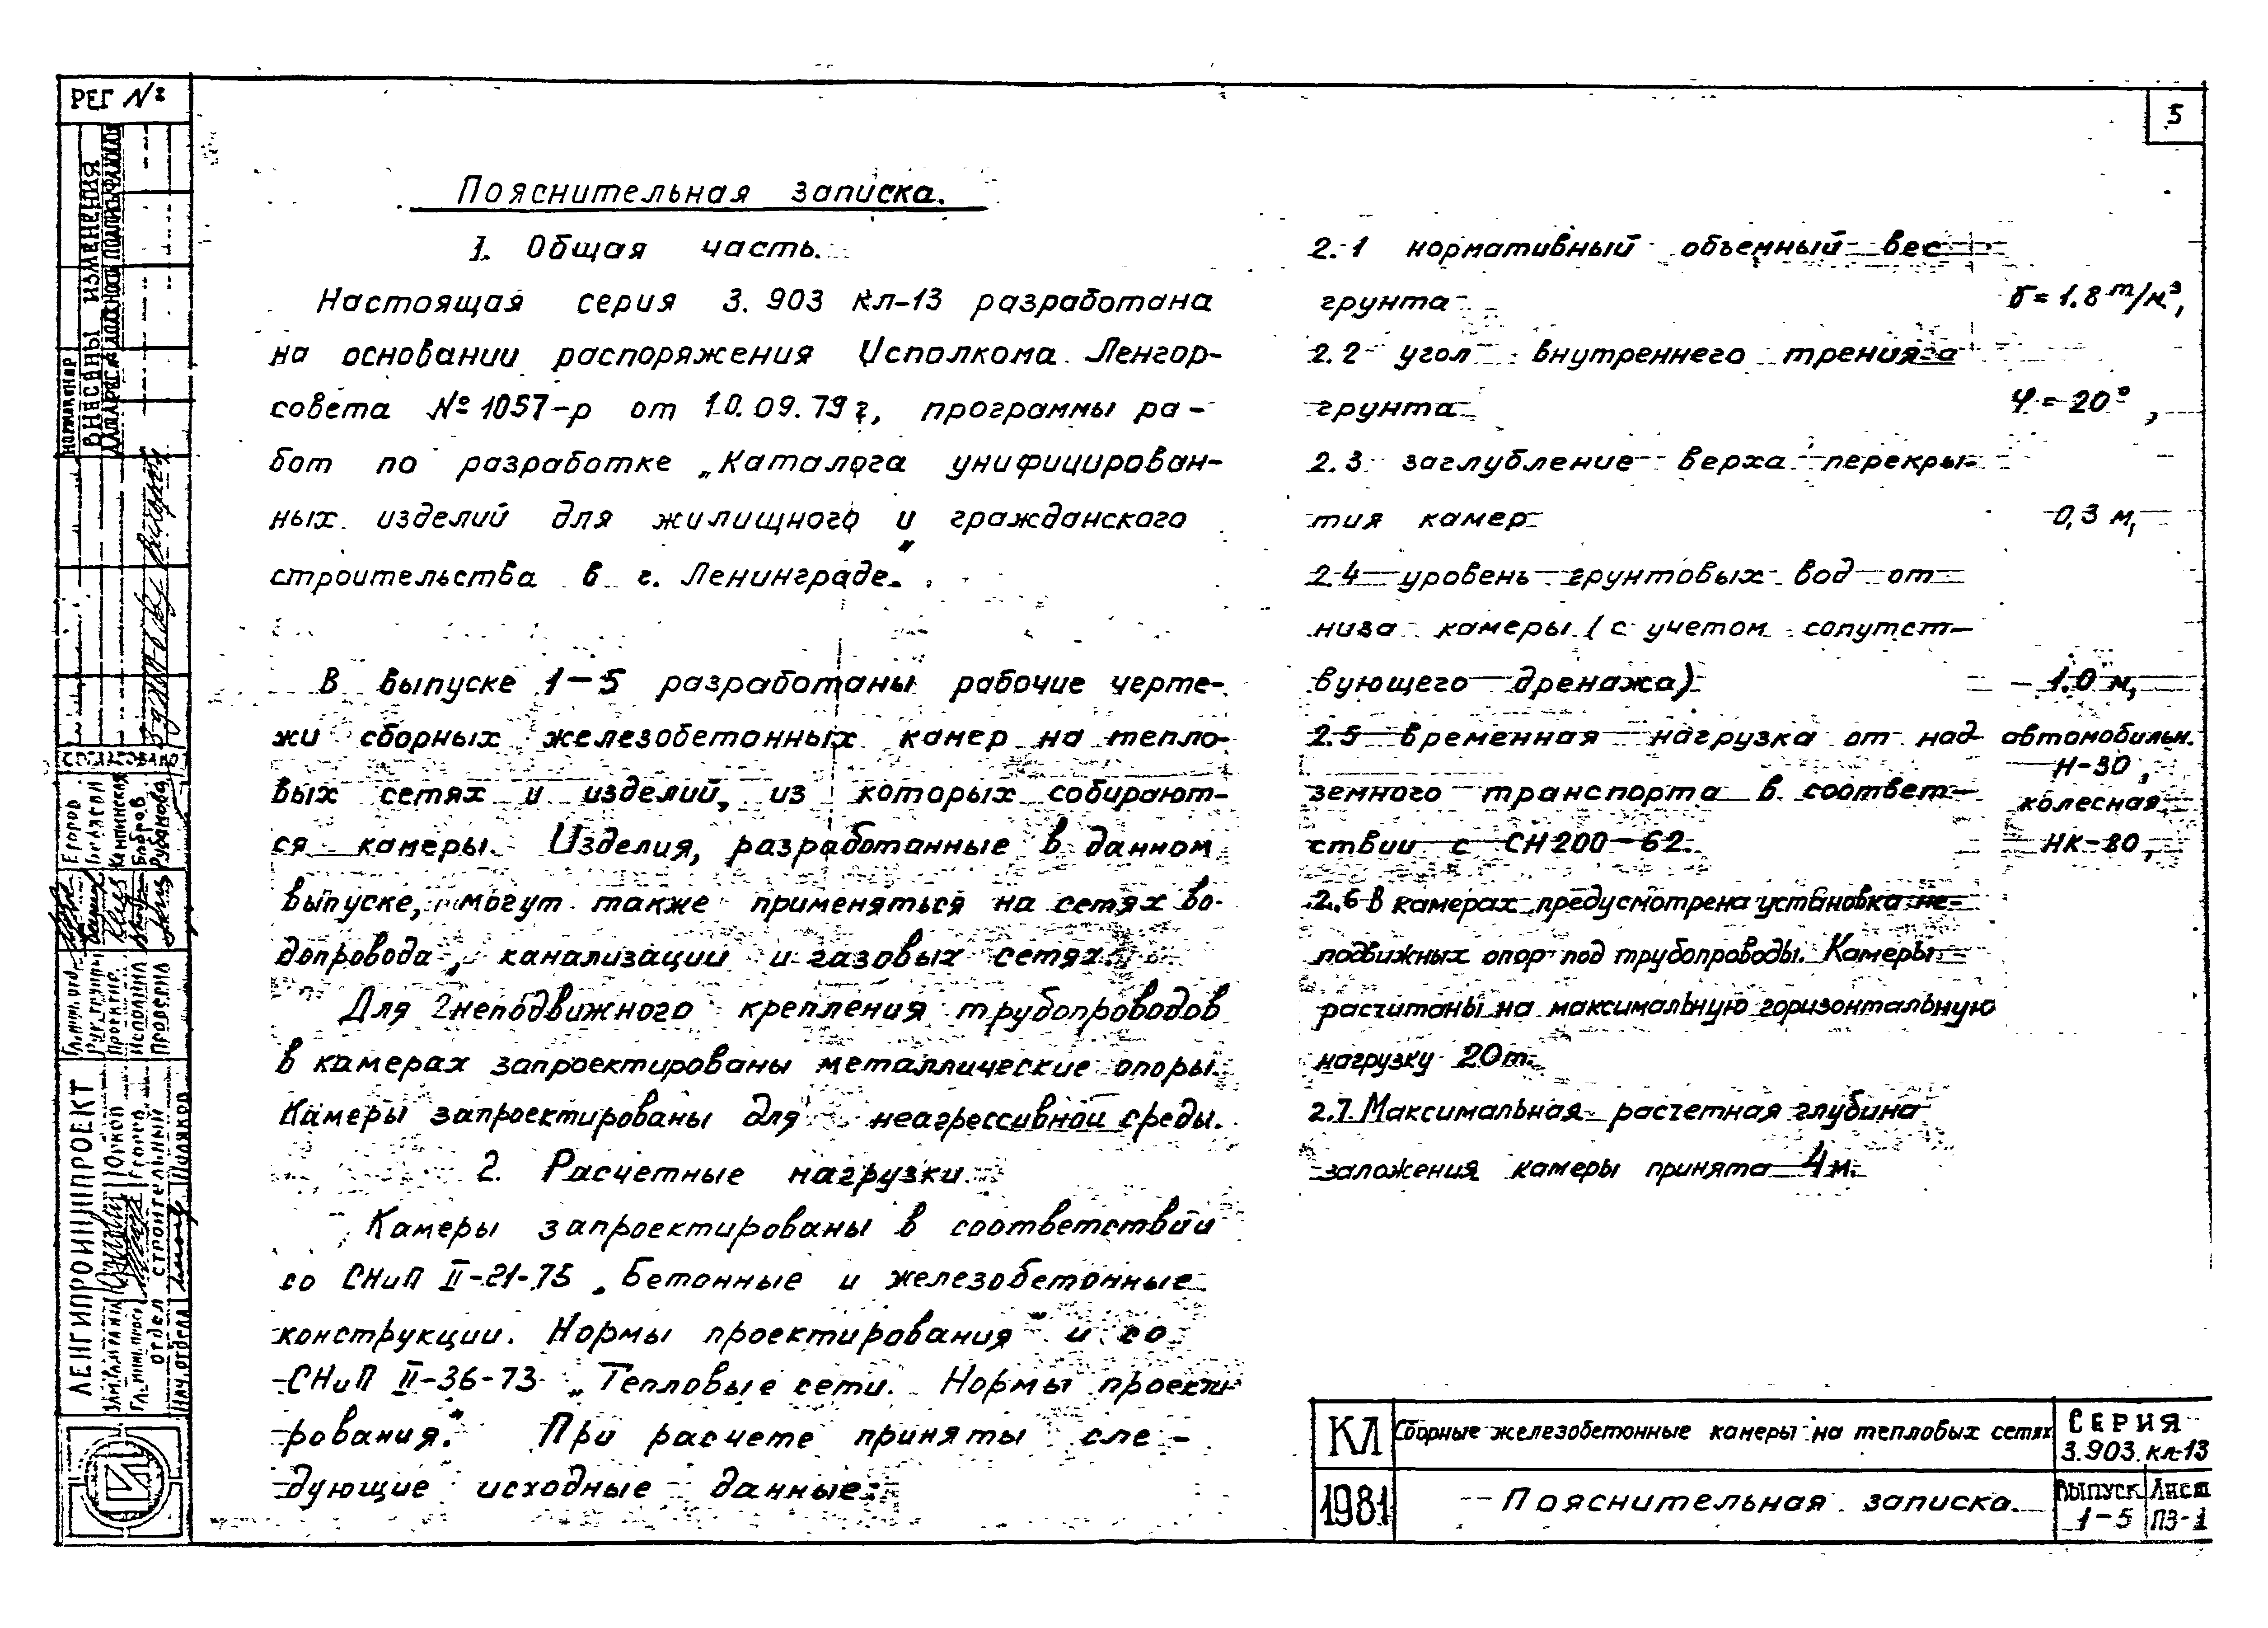 РЕГ №
5
Пояснительная записка.
1. Общая часть.
Настоящая серия 3.903 кл-13 разработана
на основании распоряжения Исполкома Ленгор-
совета № 1057-р от 10.09.79 г, программы ра-
бот по разработке „Каталога унифицирован-
ных изделий для жилищного и гражданского
строительства в г. Ленинграде".
В выпуске 1-5 разработаны рабочие черте-
жи сборных железобетонных камер на тепло-
вых сетях и изделий, из которых собирают-
ся камеры. Изделия, разработанные в данном
выпуске, могут также применяться на сетях во-
допровода, канализации и газовых сетях.
Для неподвижного крепления трубопроводов
в камерах запроектированы металлические опоры.
Камеры запроектированы для неагрессивной среды.
2. Расчетные нагрузки.
Камеры запроектированы в соответствии
со СНиП II-21-75 „Бетонные и железобетонные
конструкции. Нормы проектирования" и со
СНиП II-36-73 „Тепловые сети. Нормы проекти-
рования." При расчете приняты сле-
дующие исходные данные:
2.1 нормативный объемный вес
грунта γ = 1.8 т/м³,
2.2 угол внутреннего трения
грунта φ = 20°,
2.3 заглубление верха перекры-
тия камер 0,3 м,
2.4 уровень грунтовых вод от
низа камеры (с учетом сопутст-
вующего дренажа) 1.0 м,
2.5 временная нагрузка от над-
земного транспорта в соответ-
ствии с СН 200-62.
автомобильн.
Н-30,
колесная
НК-80,
2.6 В камерах предусмотрена установка не-
подвижных опор под трубопроводы. Камеры
расчитаны на максимальную горизонтальную
нагрузку 20т.
2.7. Максимальная расчетная глубина
заложения камеры принята 4м.
КЛ Сборные железобетонные камеры на тепловых сетях СЕРИЯ
3.903 кл-13
1981 Пояснительная записка. Выпуск Лист
1-5 ПЗ-1
НОРМАКОНТР
ВНЕСЕНЫ ИЗМЕНЕНИЯ
СОГЛАСОВАНО
Егоров
Каплинская
Бобров
Русанова
Рук. группы
Исполнил
Проверил
ЛЕНГИПРОИНЖПРОЕКТ
Юрков
Егоров
ОТДЕЛ СТРОИТЕЛЬНЫЙ
Нач. отдела Поляков